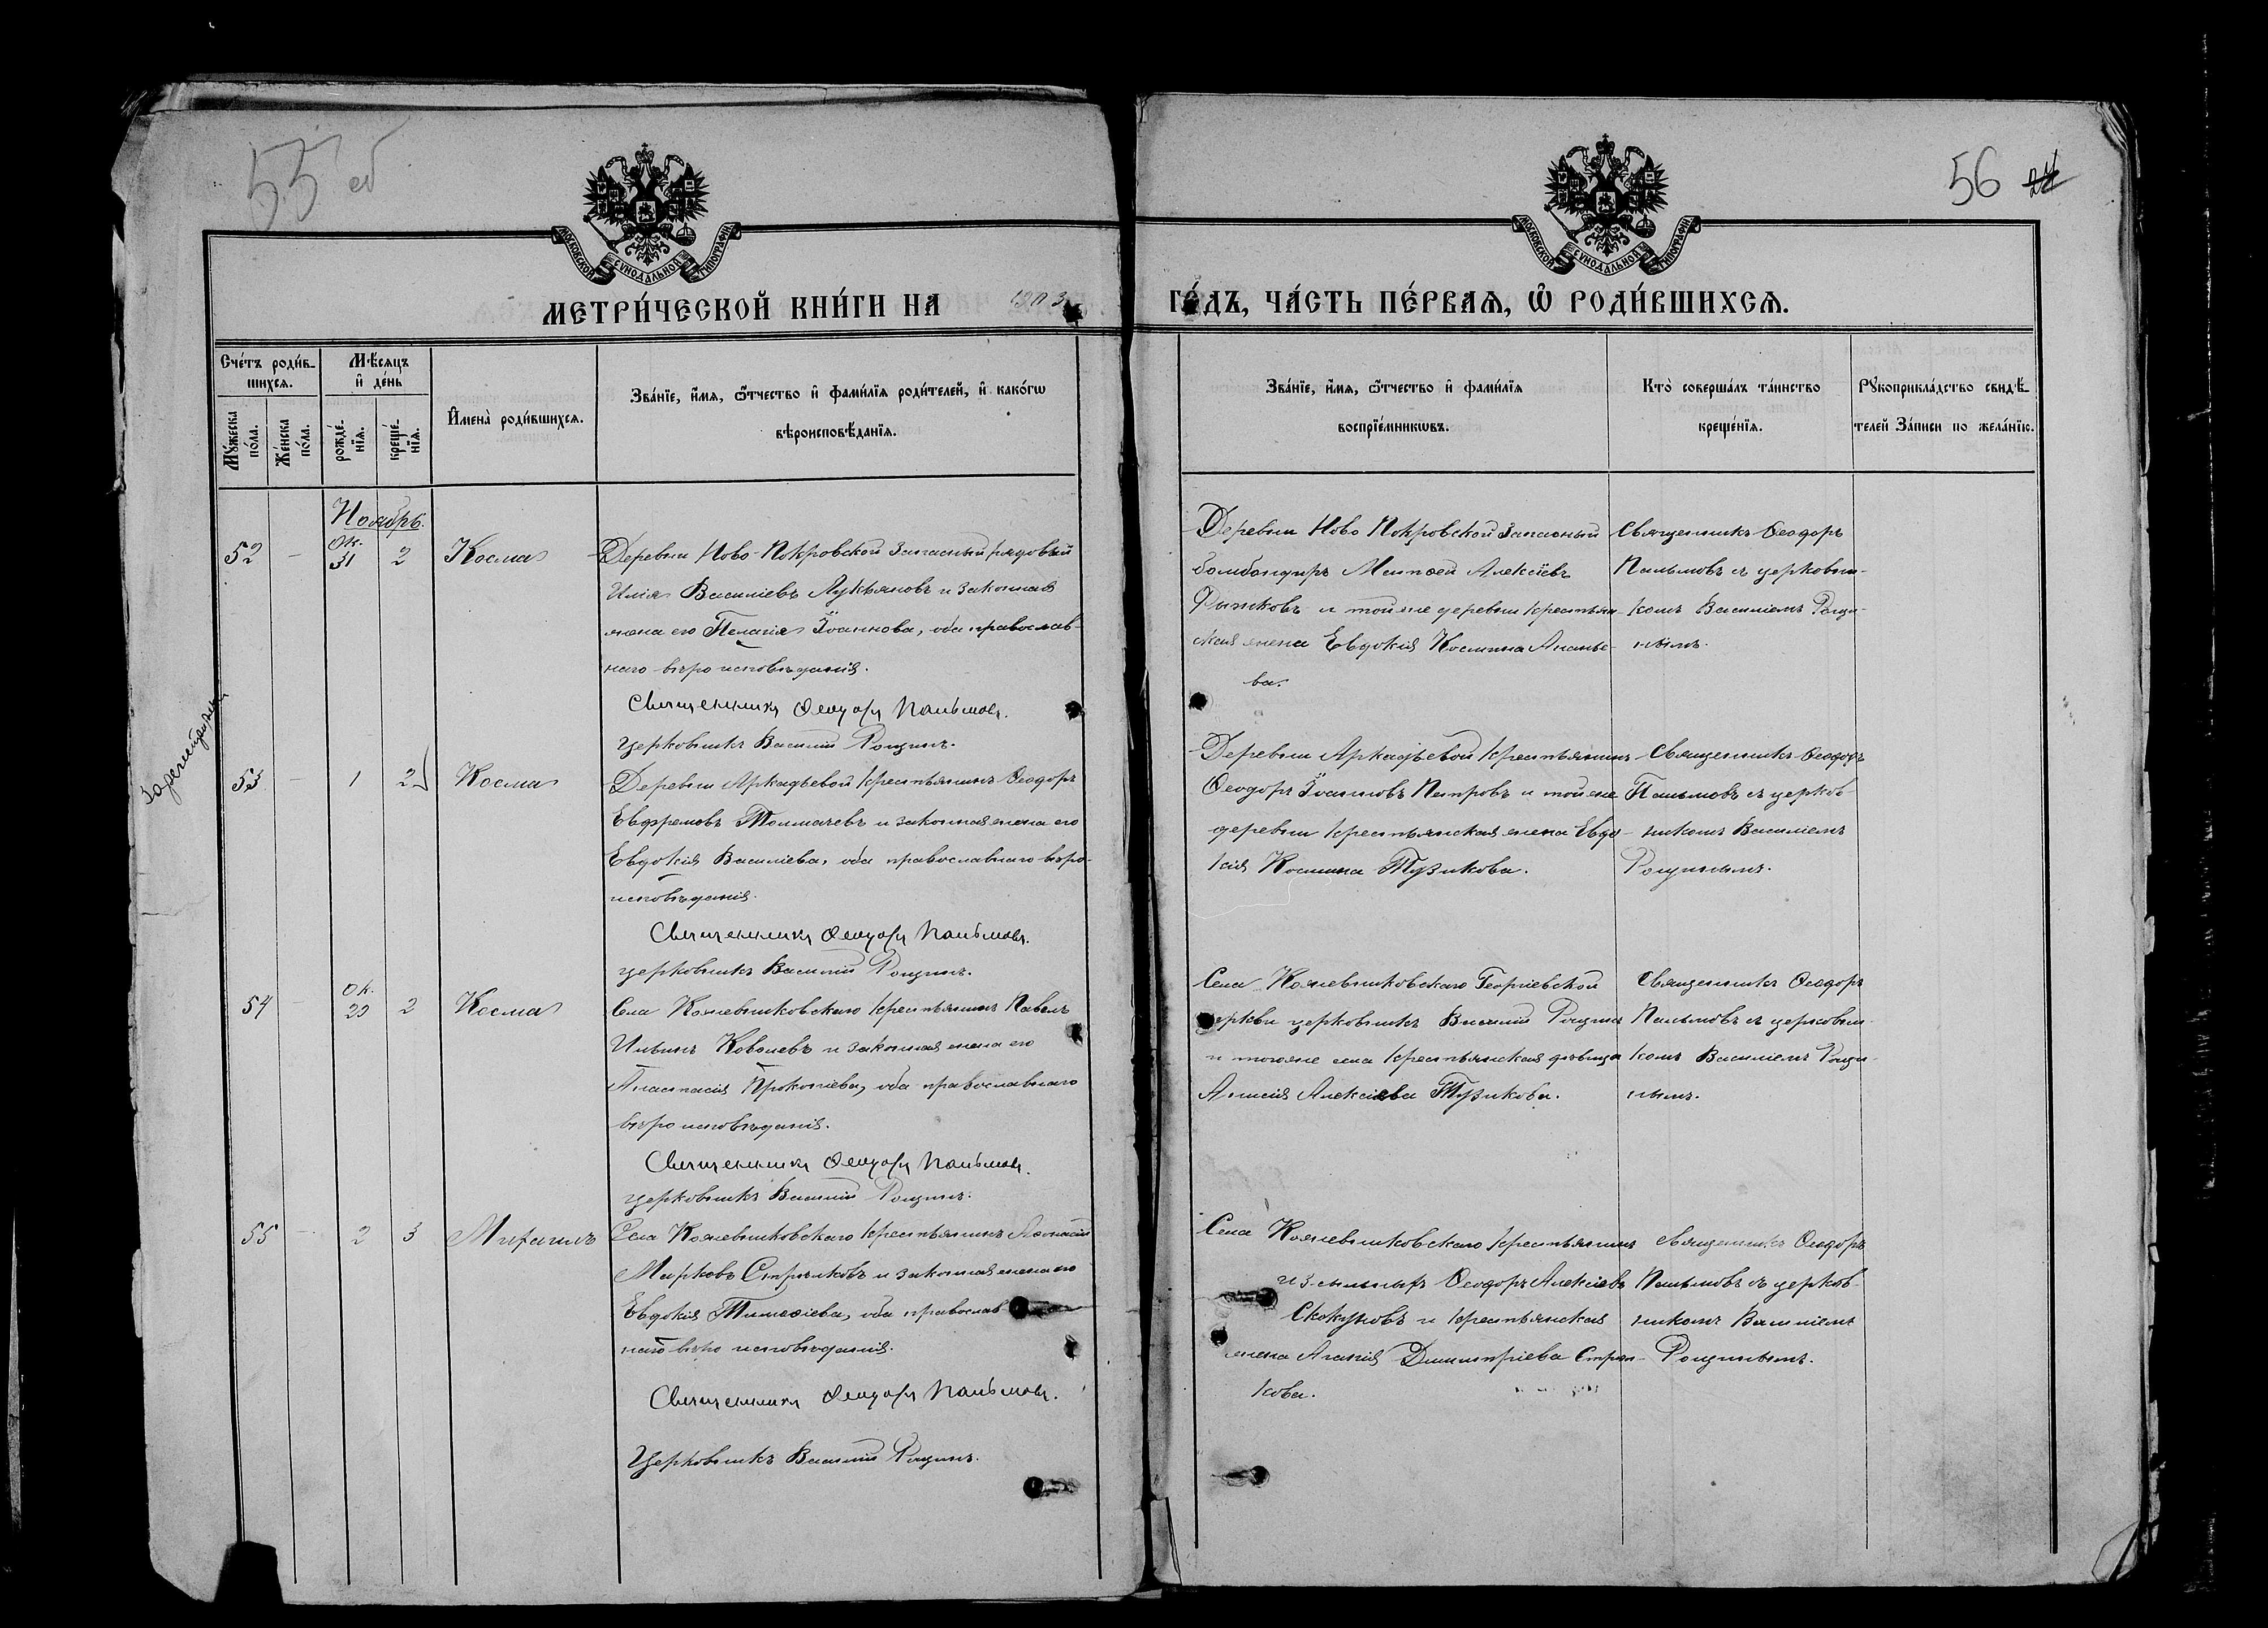 55 об
56 24
МОСКОВСКОЙ СѴНОДАЛЬНОЙ ТИПОГРАФІИ
МОСКОВСКОЙ СѴНОДАЛЬНОЙ ТИПОГРАФІИ
МЕТРИ́ЧЕСКОЙ КНИ́ГИ НА 1903
ГО́ДЪ, ЧА́СТЬ ПЕ́РВАѦ, Ѡ҆ РОДИ́ВШИХСѦ.
Сче́тъ роди́в-
шихсѧ.
Мꙋ́жеска по́ла.
Же́нска по́ла.
Мѣ́сѧцъ
и҆ де́нь
рожде́-
нїѧ.
креще́-
нїѧ.
И҆мена̀ роди́вшихсѧ.
Зва́нїе, и҆́мѧ, ѻ҆́тчество и҆ фами́лїѧ роди́телей, и҆ како́гѡ
вѣроисповѣ́данїѧ.
Зва́нїе, и҆́мѧ, ѻ҆́тчество и҆ фами́лїѧ
воспрїе́мникѡвъ.
Кто̀ соверша́лъ та́инство
креще́нїѧ.
Рꙋкоприкла́дство свидѣ́-
телей за́писи по жела́нїю.
Ноябрь.
52 - Ок. 31 2 Косма
Деревни Ново-Покровской запасный рядовый
Илія Василіевъ Лукьяновъ и законная
жена его Пелагія Іоаннова, оба православ-
наго вѣроисповѣданія.
Священникъ Ѳеодоръ Пальмовъ.
Церковникъ Василій Рощинъ.
Деревни Ново Покровской запасный
бомбардиръ Матѳей Алексіевъ
Рыжковъ и той же деревни крестьян-
ская жена Евдокія Космина Ананье-
ва.
Священникъ Ѳеодоръ
Пальмовъ съ церковни-
комъ Василіемъ Рощи-
нымъ.
53 - 1 2 Косма
Деревни Аркадьевой крестьянинъ Ѳеодоръ
Евфремовъ Толмачевъ и законная жена его
Евдокія Василіева, оба православнаго вѣро-
исповѣданія.
Священникъ Ѳеодоръ Пальмовъ.
Церковникъ Василій Рощинъ.
Деревни Аркадьевой крестьянинъ
Ѳеодоръ Іоанновъ Петровъ и той же
деревни крестьянская жена Евдо-
кія Космина Тузикова.
Священникъ Ѳеодоръ
Пальмовъ съ церков-
никомъ Василіемъ
Рощинымъ.
54 - Ок. 29 2 Косма
Села Кожевниковскаго крестьянинъ Павелъ
Ильинъ Ковалевъ и законная жена его
Анастасія Прокопіева, оба православнаго
вѣроисповѣданія.
Священникъ Ѳеодоръ Пальмовъ.
Церковникъ Василій Рощинъ.
Села Кожевниковскаго Георгіевской
церкви церковникъ Василій Рощинъ
и того же села крестьянская дѣвица
Алексіева Тузикова.
Священникъ Ѳеодоръ
Пальмовъ съ церковни-
комъ Василіемъ Рощи-
нымъ.
55 - 2 3 Михаилъ
Села Кожевниковскаго крестьянинъ Аѳанасій
Марковъ Стрелковъ и законная жена его
Евдокія Тимоѳіева, оба православ
наго вѣроисповѣданія.
Священникъ Ѳеодоръ Пальмовъ.
Церковникъ Василій Рощинъ.
Села Кожевниковскаго крестьянинъ
изъ ссыльныхъ Ѳеодоръ Алексіевъ
Скакуновъ и крестьянская
жена Агапія Димитріева Стрел-
кова.
Священникъ Ѳеодоръ
Пальмовъ съ церков-
никомъ Василіемъ
Рощинымъ.